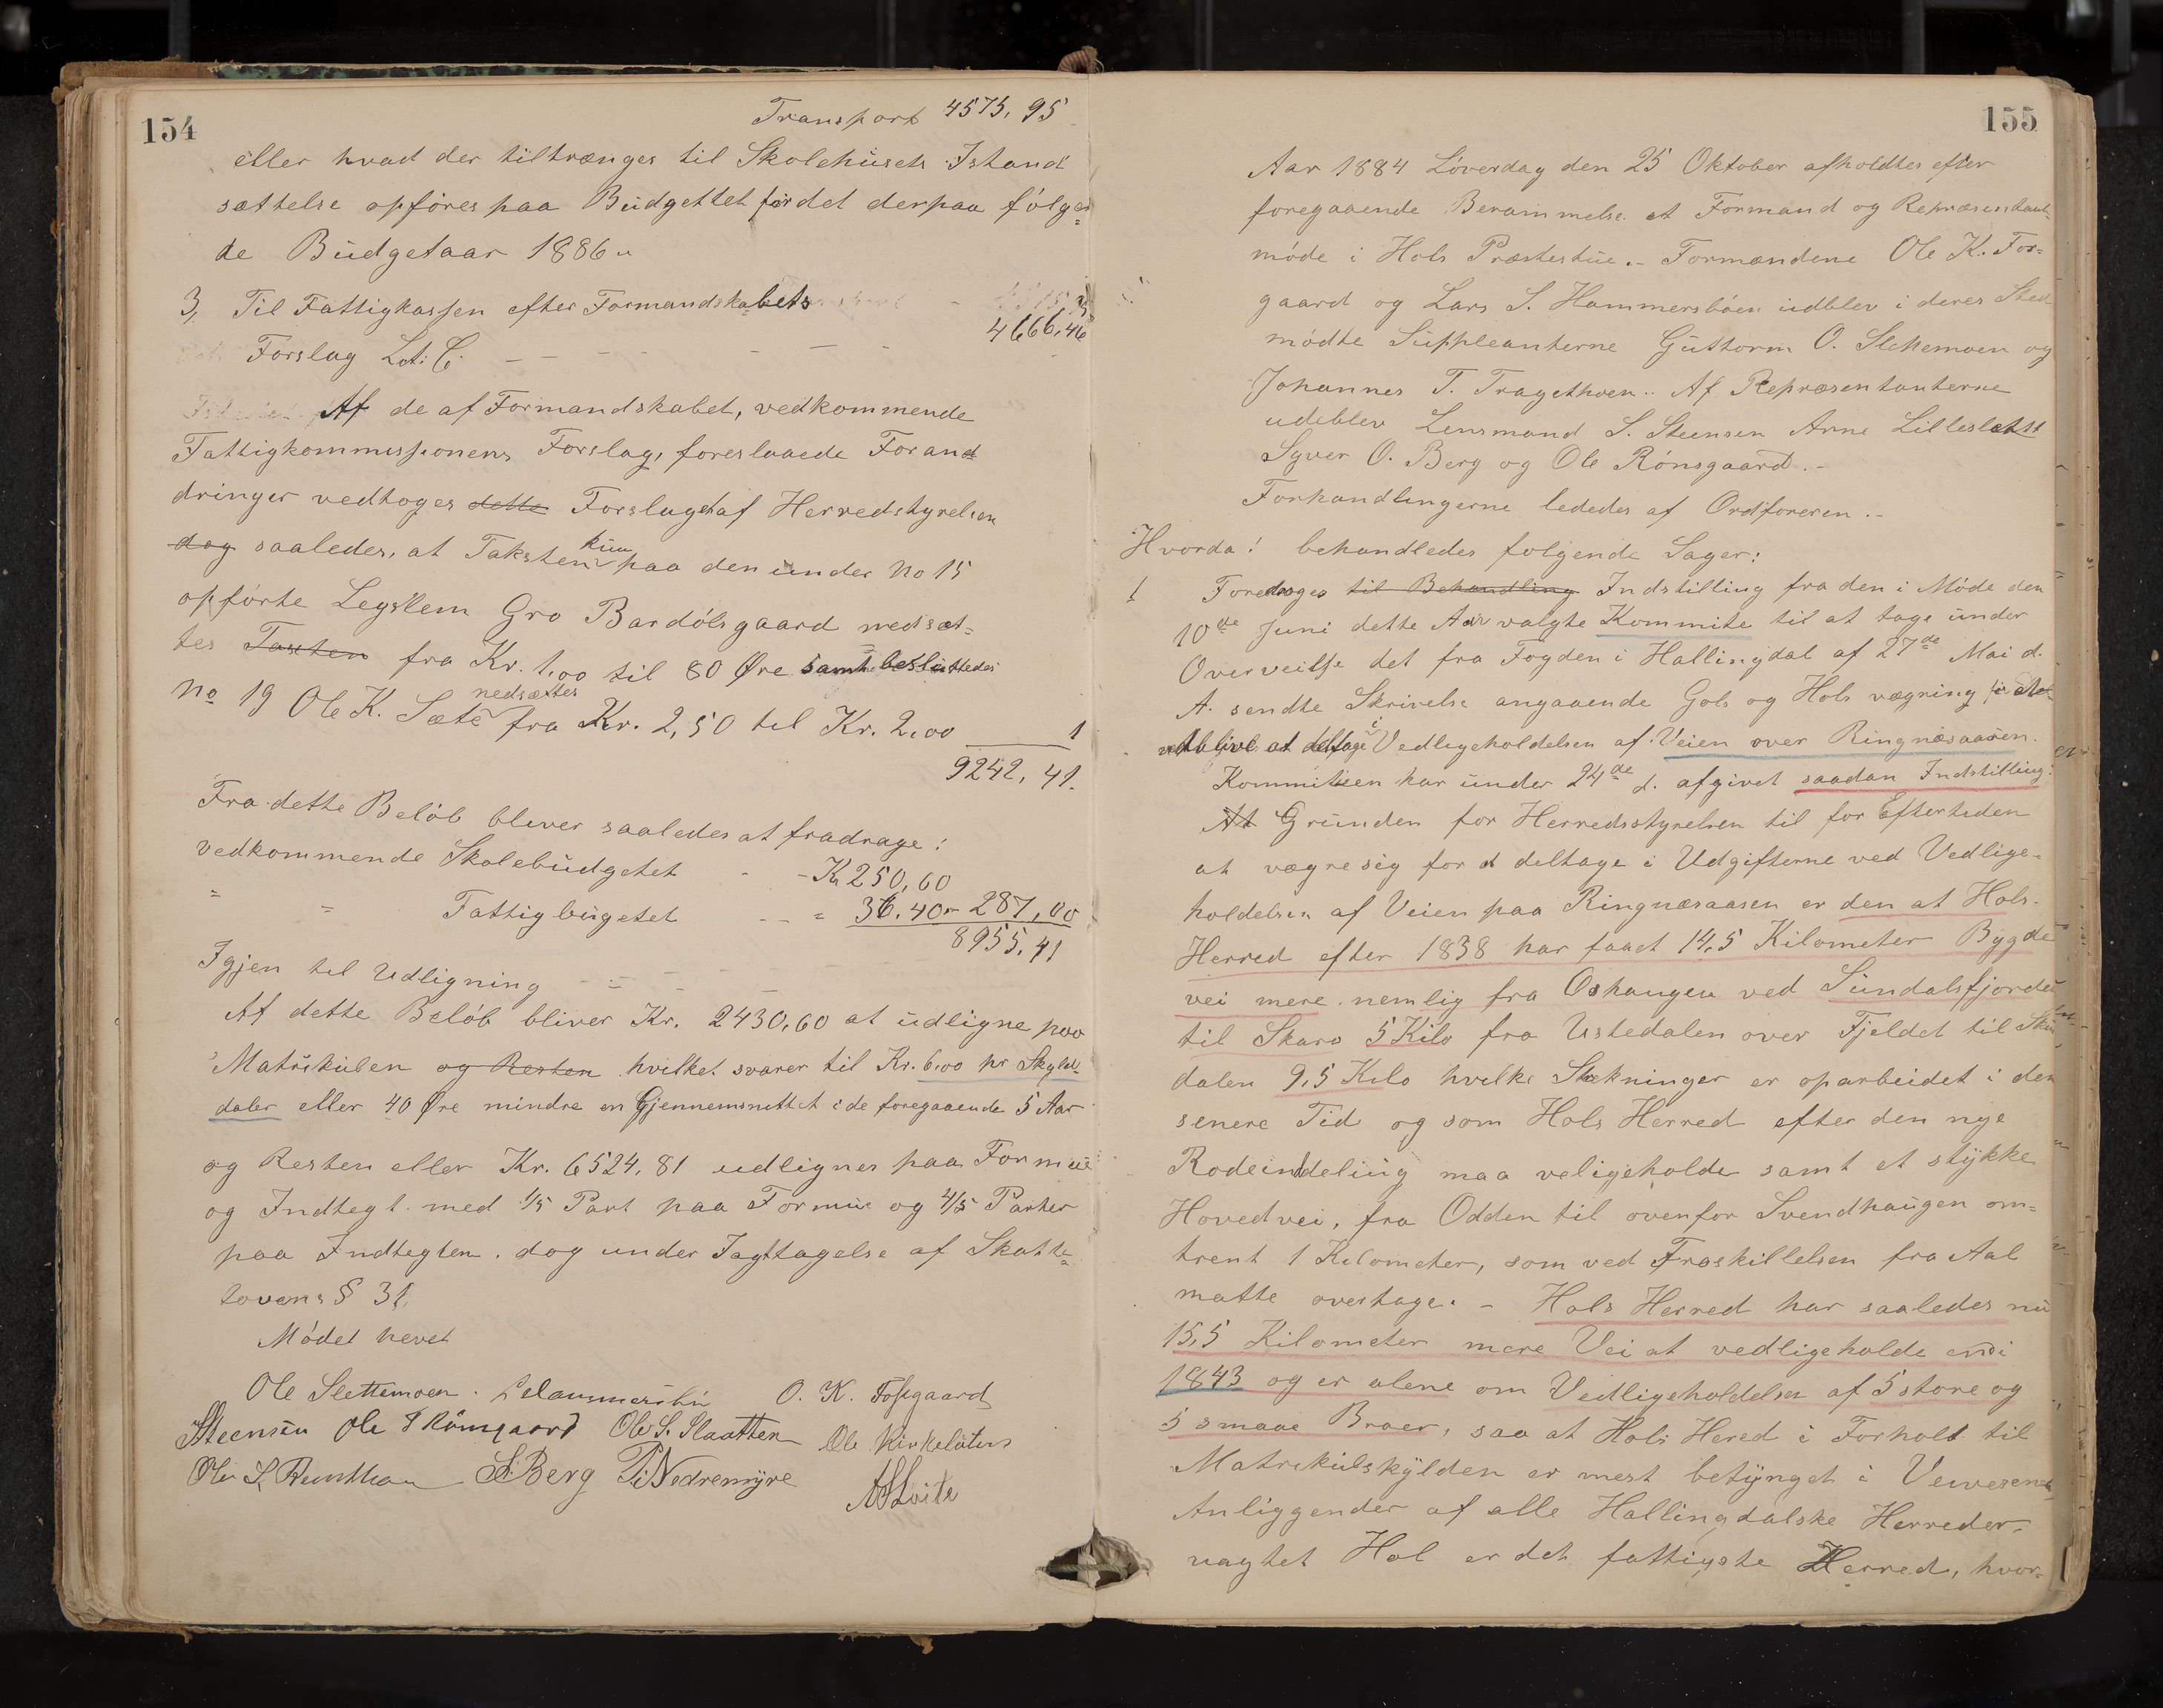 154
Transport 4575,95
eller hvad der tiltrænges til Skolehusets Istand
sættelse opføres paa Budgettet for det derpaa følgen=
de Budgetaar 1886 "
3, Til Fattigkassen efter Formandskabets
Forslag Lit: C. - - - - - - - 4666,46
Af de af Formandskabet, vedkommende
Fattigkommissionens Forslag, foreslaaede Forand
dringer vedtoges dette Forslaget af Herredstyrelsen
dog saaledes, at Taksten kun paa den under No 15
opførte Legslem Gro Bardølsgaard nedsæt=
tes Taxten fra Kr. 1,00 til 80 Øre samt besluttedes
No 19 Ole K. Sæte nedsættes fra Kr. 2,50 til Kr. 2,00 1
9242,41.
Fra dette Beløb bliver saaledes at fradrage:
vedkommende Skolebudgetet - - Kr 250,60
" = Fattigbugetet - - = 36.40 - 287,00
8955,41
Igjen til Udligning - - - -
Af dette Beløb bliver Kr. 2430,60 at udligne paa
Matrikulen og Resten hvilket svarer til Kr. 6,00 pr Skyld-
daler eller 40 Øre mindre en Gjennemsnittet i de foregaaende 5 Aar
og Resten eller Kr. 6524,81 udlignes paa Formue
og Indtegt med 1/5 Part paa Formue og 4/5 Parter
paa Indtegten. dog under Iagttagelse af Skatte=
lovens § 31.
Mødet hevet
Ole Slettemoen. O. K. Fosgaard
Steensen Ole T Rømgaard Ole S. Slaatten Ole Kirkeluten
Ole S. S. Berg T. Nedremyre

155
Aar 1884 Løverdag den 25 Oktober afholdtes efter
foregaaende Berammelse et Formand og Repræsentant-
møde i Hols Præstestue.- Formændene Ole K. Fos=
gaard og Lars S. Hammersbøen udblev i deres Sted
mødte Suppleanterne Guttorm O. Slettemoen og
Johannes T. Tragethoen.. Af Repræsentanterne
udeblev Lensmand S. Steensen Arne Lilleslett
Syver O. Berg og Ole Rønsgaard.-
Forhandlingerne lededes af Ordføreren.-
Hvorda! behandledes følgende Sager:
1 Foretoges til Behandling Indstilling fra den i Møde den
10de Juni dette Aar valgte Kommite til at tage under
Overveielse det fra Fogden i Hallingdal af 27de Mai d.
A. sendte Skrivelse angaaende Gols og Hols vægring for
vedblive at deltage i Vedligeholdelsen af Veien over Ringnæsaasen.
Kommiteen har under 24de d. afgivet saadan Indstilling:
At Grunden for Herredsstyrelsen til for Eftertiden
at vægre sig for at deltage i Udgifterne ved Vedlige-
holdelsen af Veien paa Ringnæsaasen er den at Hols-
Herred efter 1838 har faaet 14,5 Kilometer Bygde
vei mere nemlig fra Oshaugen ved Sundalsfjorden
til Skaro 5 Kilo fra Ustedalen over Fjeldet til Skur
dalen 9,5 Kilo hvilke Strekninger er oparbeidet i den
senere Tid og som Hols Herred efter den nye
Rodeinddeling maa veligeholde samt et stykke
Hovedvei, fra Odden til ovenfor Svendhaugen om=
trent 1 Kilometer, som ved Fraskillelsen fra Aal
matte overtage. - Hols Herred har saaledes nu
15,5 Kilometer mere Vei at vedligeholde end i
1843 og er alene om Vedligeholdelsen af 5 store og
5 smaae Broer, saa at Hols Hered i Forhold til
Matrikulskylden er mest betynget i Veivesenets
Anliggender af alle Hallingdalske Herreder,
uagtet Hol er det fattigste Herred, hvor-